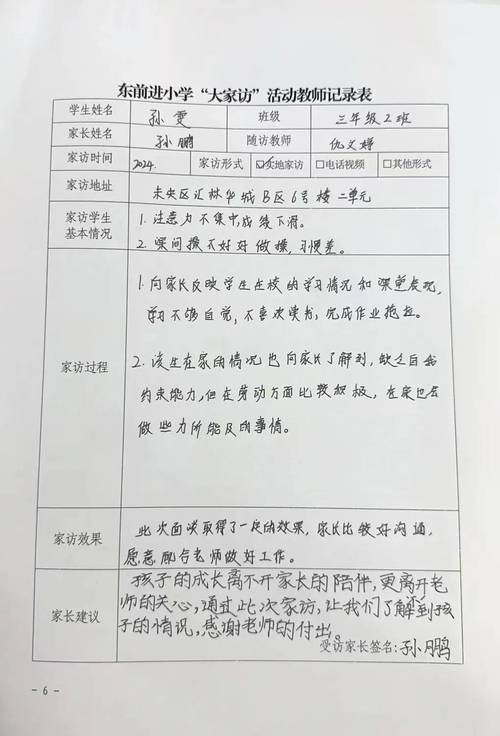 东前进小学“大家访”活动教师记录表
学生姓名 孙雯 班级 三年级2班
家长姓名 孙鹏 随访教师 仇文婷
家访时间 2024. 家访形式 ☑实地家访 □电话视频 □其他形式
家访地址 未央区汇林华城B区6号楼二单元
家访学生基本情况
1. 注意力不集中成绩下滑。
2. 课间操不好好做操,习惯差。
家访过程
1. 向家长反映学生在校的学习情况和课堂表现,
学习不够自觉,不喜欢读书,完成作业拖拉。
2. 该生在家的情况也向家长了解到,缺乏自我
约束能力,但在劳动方面比较积极,在家也会
做些力所能及的事情。
家访效果
此次面谈取得了一定的效果,家长比较好沟通,
愿意配合老师做好工作。
家长建议
孩子的成长离不开家长的陪伴,更离开老
师的关心,通过此次家访,让我们了解到孩
子的情况,感谢老师的付出。
受访家长签名:孙鹏
- 6 -